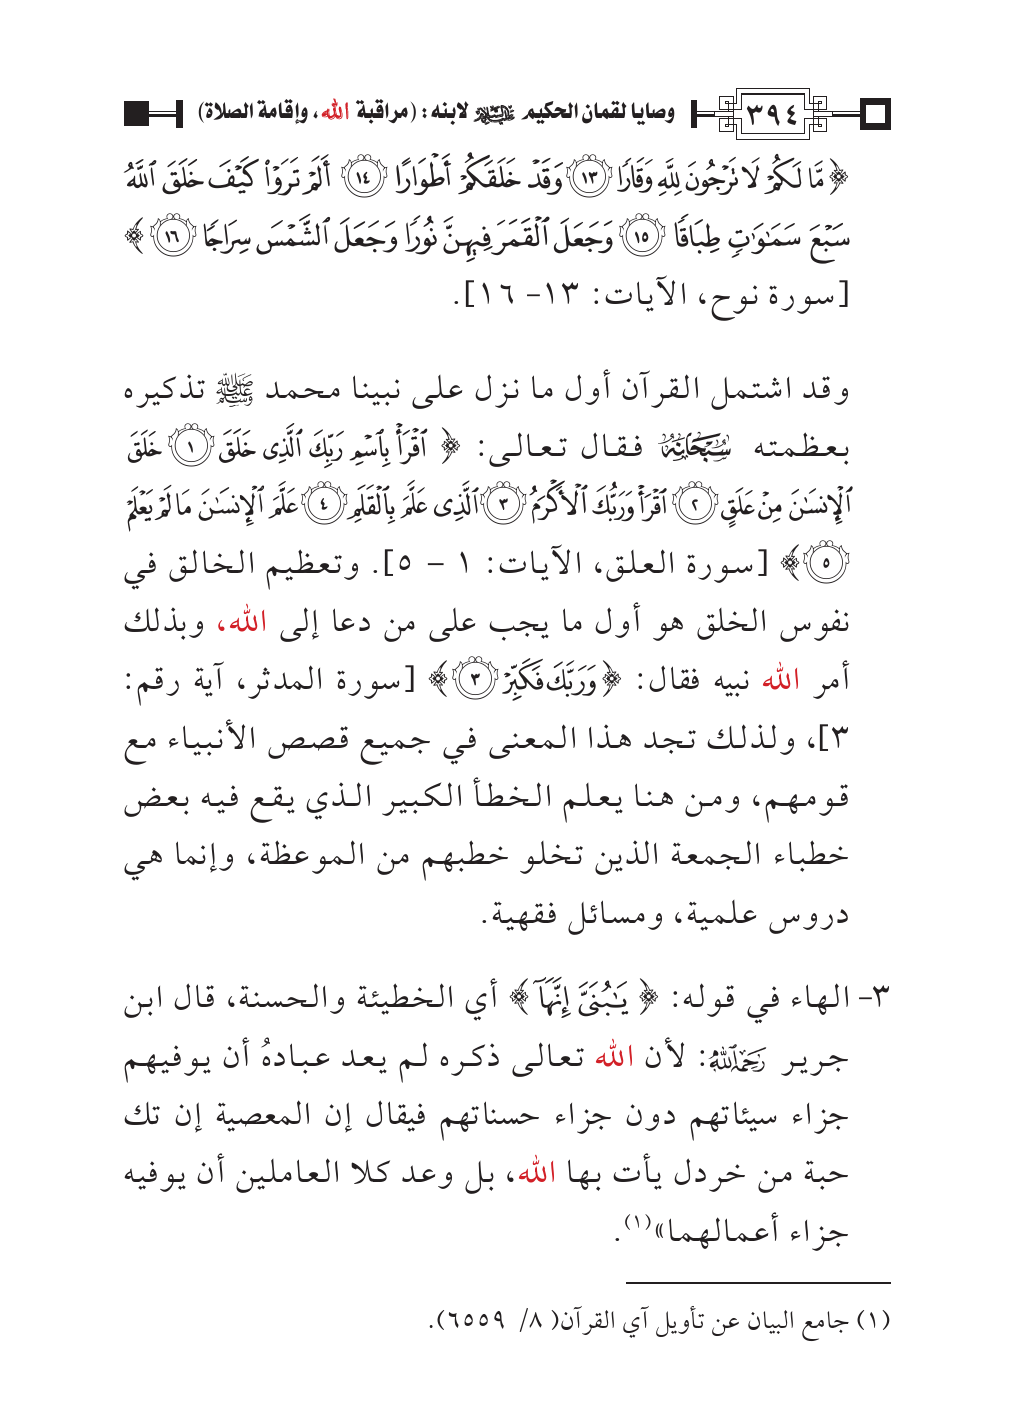 ٣٩٤ وصايا لقمان الحكيم ﵇ لابنه: (مراقبة الله، وإقامة الصلاة)
﴿مَّا لَكُمْ لَا تَرْجُونَ لِلَّهِ وَقَارًا ١٣ وَقَدْ خَلَقَكُمْ أَطْوَارًا ١٤ أَلَمْ تَرَوْا۟ كَيْفَ خَلَقَ ٱللَّهُ
سَبْعَ سَمَـٰوَٰتٍ طِبَاقًا ١٥ وَجَعَلَ ٱلْقَمَرَ فِيهِنَّ نُورًا وَجَعَلَ ٱلشَّمْسَ سِرَاجًا ١٦﴾
[سورة نوح، الآيات: ١٣- ١٦].
وقد اشتمل القرآن أول ما نزل على نبينا محمد ﷺ تذكيره
بعظمته سُبْحَانَهُ فقال تعالى: ﴿ٱقْرَأْ بِٱسْمِ رَبِّكَ ٱلَّذِى خَلَقَ ١ خَلَقَ
ٱلْإِنسَـٰنَ مِنْ عَلَقٍ ٢ ٱقْرَأْ وَرَبُّكَ ٱلْأَكْرَمُ ٣ ٱلَّذِى عَلَّمَ بِٱلْقَلَمِ ٤ عَلَّمَ ٱلْإِنسَـٰنَ مَا لَمْ يَعْلَمْ
٥﴾ [سورة العلق، الآيات: ١ – ٥]. وتعظيم الخالق في
نفوس الخلق هو أول ما يجب على من دعا إلى الله، وبذلك
أمر الله نبيه فقال: ﴿وَرَبَّكَ فَكَبِّرْ ٣﴾ [سورة المدثر، آية رقم:
٣]، ولذلك تجد هذا المعنى في جميع قصص الأنبياء مع
قومهم، ومن هنا يعلم الخطأ الكبير الذي يقع فيه بعض
خطباء الجمعة الذين تخلو خطبهم من الموعظة، وإنما هي
دروس علمية، ومسائل فقهية.
٣- الهاء في قوله: ﴿يَـٰبُنَىَّ إِنَّهَآ﴾ أي الخطيئة والحسنة، قال ابن
جرير رَحِمَهُ ٱللَّهُ: لأن الله تعالى ذكره لم يعد عبادهُ أن يوفيهم
جزاء سيئاتهم دون جزاء حسناتهم فيقال إن المعصية إن تك
حبة من خردل يأت بها الله، بل وعد كلا العاملين أن يوفيه
جزاء أعمالهما»(١).
(١) جامع البيان عن تأويل آي القرآن( ٨/ ٦٥٥٩).